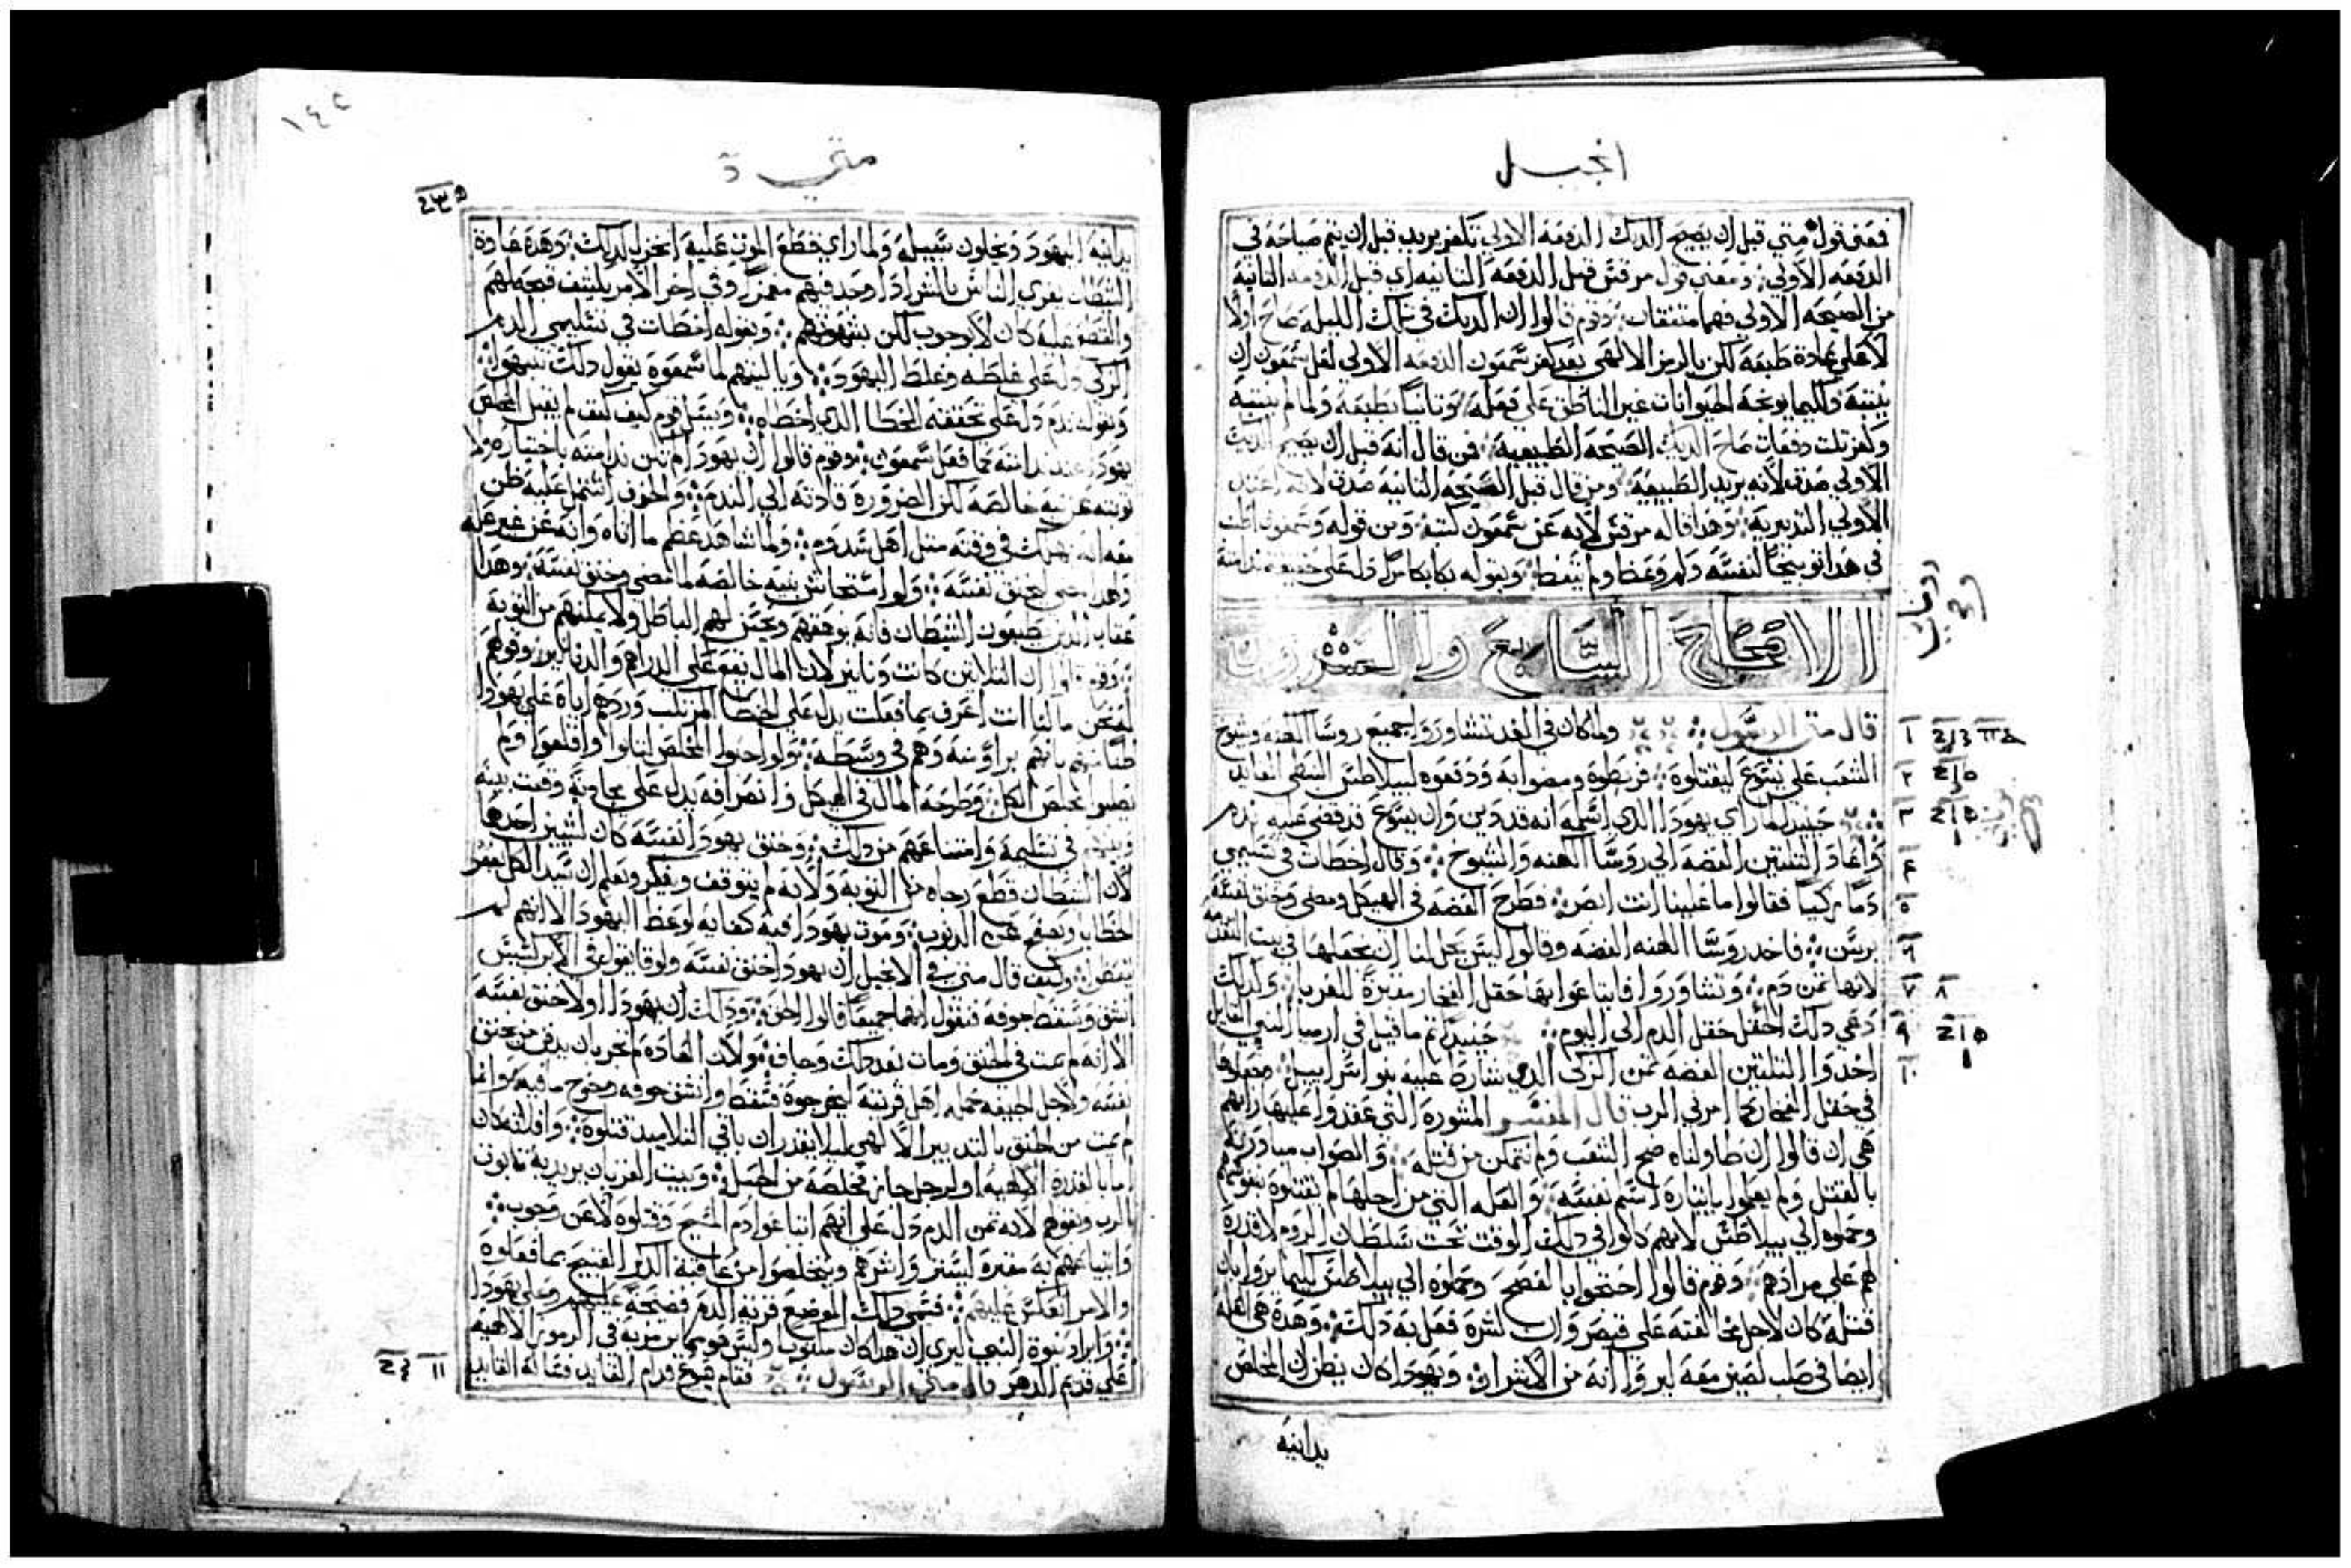 انجيل
فمعنى قول متي قبل ان يصيح الديك الدفعه الاولي تكفر يريد قبل ان يتم صياحه في
الدفعه الاولي ومعني قول مرقس قبل الدفعه الثانيه اي قبل الدفعه الثانية
من الصيحه الاولي فهما متفقان وقوم قالوا ان الديك في تلك الليله صاح اولا
لا علي عادة طبعه لكن بالرمز الالهي بعد كفر شمعون الدفعه الاولي لعل شمعون ان
ينتبه وكيما يوبخه الحيوانات غير الناطق علي فعله وثانيا بطبعه ولما لم ينتبه
وكفر ثلث دفعات صاح الديك الصيحه الطبيعيه فمن قال انه قبل ان يصيح الديك
الاولي صدق لانه يريد الطبيعيه ومن قال قبل الصيحه الثانيه صدق لانه اعتد
الاولي التدبيريه وهذا قاله مرقس لانه عن شمعون كتبه ومن قوله وشمعون
في هذا توبيخا لنفسه ولم وعظ ولم يتعظ وبقوله بكا بكا مرا دل علي حقيقه ندامته
الاصحاح السابع والعشرون
قال متي الرسول ولما كان في الغد تشاوروا جميع روسا الكهنه وشيوخ
الشعب علي يشوع ليقتلوه فربطوه ومضوا به ودفعوه لبيلاطس النبطي القايد
حينيد لما راي يهودا الذي اسلمه انه قد دين وان يشوع قد قضي عليه ندم
واعاد الثلثين الفضه الي روسا الكهنه والشيوخ وقال اخطات في تسليمي
دما زكيا فقالوا ما علينا انت ابصر فطرح الفضه في الهيكل ومضي وخنق نفسه
فاخد روسا الكهنه الفضه وقالوا ليس يحل لنا ان نجعلها في بيت
لانها ثمن دم وتشاوروا فابتاعوا بها حقل الفخار مقبرة للغربا ولذلك
دعي ذلك الحقل حقل الدم الي اليوم حينيد تم ما قيل في ارميا النبي القايل
اخدوا الثلثين الفضه ثمن الزكي الذي شارط عليه بنو اسراييل وجعلوها
في حقل الفخار كما امرني الرب قال المفسر المشوره التي عقدوا عليها رايهم
هي ان قالوا ان طاولناه ضج الشعب ولم نتمكن من قتله والصواب مبادرته
بالقتل ولم يعلموا بايثاره اسلم نفسه والعله التي من اجلها لم يقتلوه بنفوسهم
وحملوه الي بيلاطس لانهم كانوا في ذلك الوقت تحت سلطان الروم لا قدرة
لهم علي مرادهم وقوم قالوا احتجوا بالفصح وحملوه الي بيلاطس كيما يروا بان
قتله كان لاجل مخالفته علي قيصر وان لشره فعل به ذلك وهذه هي العله
ايضا في صلب لصين معه ليروا انه من الاشرار ويهودا كان يظن ان المخلص
يدانيه
١ ٢ ٣ ٤ ٥ ٦ ٧ ٨ ٩ ١٠
١٤٢
متي
يدانيه اليهود ويخلون سبيله ولما راي قطع الموت عليه انخزل لذلك وهذه عادة
الشيطان يغري الناس بالشر اذا وجد فيهم مغمزا وفي اخر الامر يكشف قبح فعلهم
والقضا عليه كان لا بوجوب لكن بشهوتهم وبقوله اخطات في تسليمي الدم
الزكي دل علي غلطه وغلط اليهود وياليتهم لما سمعوه يقول ذلك تنبهوا
وبقوله ندم دل علي تحققه الخطا الذي اخطاه ويسل قوم كيف لم يقبل المخلص
يهودا عند ندامته كما فعل شمعون وقوم قالوا ان يهودا لم تكن ندامته باختياره ولا
توبته عن نيه خالصه لكن الضروره قادته الي الندم والخوف اشتمل عليه ظن
معه انه يهلك في وقته مثل اهل سدوم ولما شاهد عظم ما اتاه وانه عن غير عله
وهذا مضي لخنق نفسه ولو استغاث بنيه خالصه لما مضي وخنق نفسه وهذا
عقاب الذين يطيعون الشيطان فانه يوهقهم ويحسن لهم الباطل ولا يمكنهم من التوبة
وقوم قالوا ان الثلاثين كانت دنانير لان المال يقع علي الدراهم والدنانير وقولهم
نحن ما لنا انت اعرف بما فعلت يدل علي الخطا المرتكب وردهم اياه علي يهودا
ظنا منهم بانهم براو منه وهم في وسطه ولو احبوا المخلص لتابوا واقلعوا ولم
تصير لمخلص الكل وطرحه المال في الهيكل وانصرافه يدل علي مجاوبة وقعت بينه
وبينهم في تسليمه وامتناعهم من ذلك وخنق يهودا لنفسه كان لشيين احدهما
لان الشيطان قطع رجاه من التوبة ولانه لم يتوقف ويفكر ويعلم ان سيد الكل يغفر
الخطايا ويصفح عن الدنوب وموت يهودا فيه كفايه لوعظ اليهود الا انهم لم
تتعظ وكيف قال متي في الانجيل ان يهودا خنق نفسه ولوقا يقول في الابركسيس
انشق وسقط جوفه فنقول انهما جميعا قالوا الحق وذلك ان يهودا اولا خنق نفسه
الا انه لم يمت في الخنق ومات بعد ذلك وجاف ولان العاده لم تجر بان يدفن من يخنق
نفسه ولاجل الجيفه حمله اهل قريته ليخرجوه فسقط وانشق جوفه وخرج ما فيه وانما
لم يمت من الخنق بالتدبير الالهي ليلا يقدر ان باقي التلاميد قتلوه وافلاته كان
اما بالقدره الالهيه او لرجل جاز فخلصه من الحبل وبيت القربان يريد به تابوت
الرب وقولهم لانه ثمن الدم دل علي انهم ابتاعوا دم المسيح وقتلوه لا عن وجوب
وابتياعهم به مقبره ليستر واشرهم ويتخلصوا من عاقبة الذكر القبيح بما فعلوه
والامر انعكس عليهم فسمي ذلك الموضع قرية الدم فضيحة عليهم وعلي يهودا
وايراد نبوة النبي ليري ان هذا كان مكتوبا وليس هو مما بل مرموز به في الرموز الالهيه
علي قديم الدهر قال متي الرسول فقام يشوع قدام القايد فساله القايد
١١